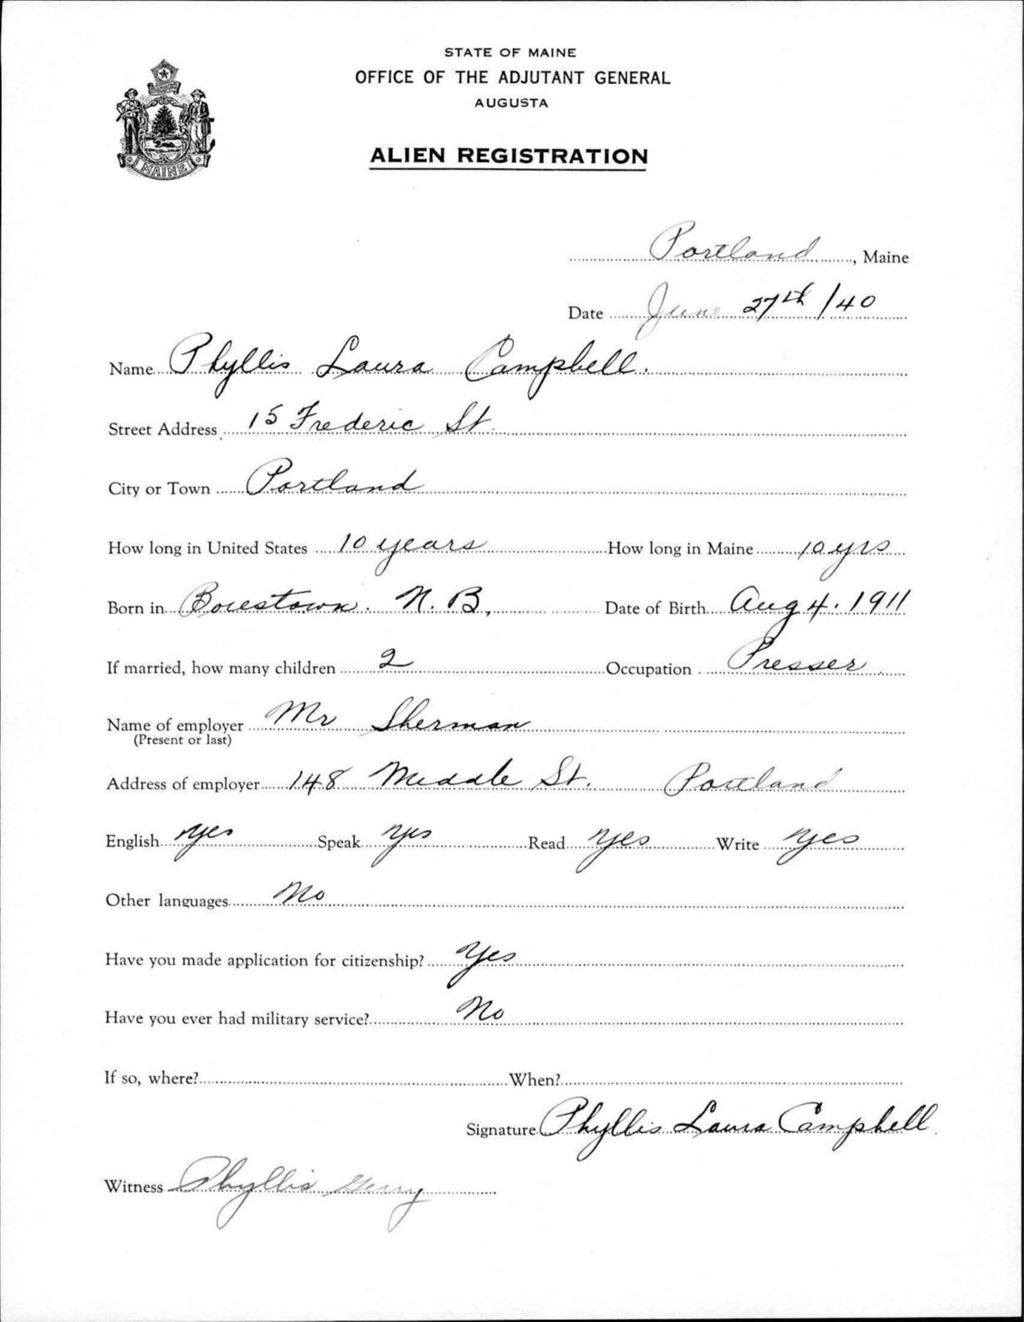 STATE OF MAINE
OFFICE OF THE ADJUTANT GENERAL
AUGUSTA
ALIEN REGISTRATION
MAINE
Portland, Maine
Date June 27th/40
Name Phyllis Laura Campbell.
Street Address 15 Frederic St.
City or Town Portland
How long in United States 10 years How long in Maine 10 yrs
Born in Boiestown. N.B, Date of Birth Aug 4. 1911
If married, how many children 2 Occupation Presser
Name of employer Mr Sherman
(Present or last)
Address of employer 148 Middle St. Portland
English yes Speak yes Read yes Write yes
Other languages No
Have you made application for citizenship? Yes
Have you ever had military service? No
If so, where? When?
Signature Phyllis Laura Campbell.
Witness Phyllis Gerry